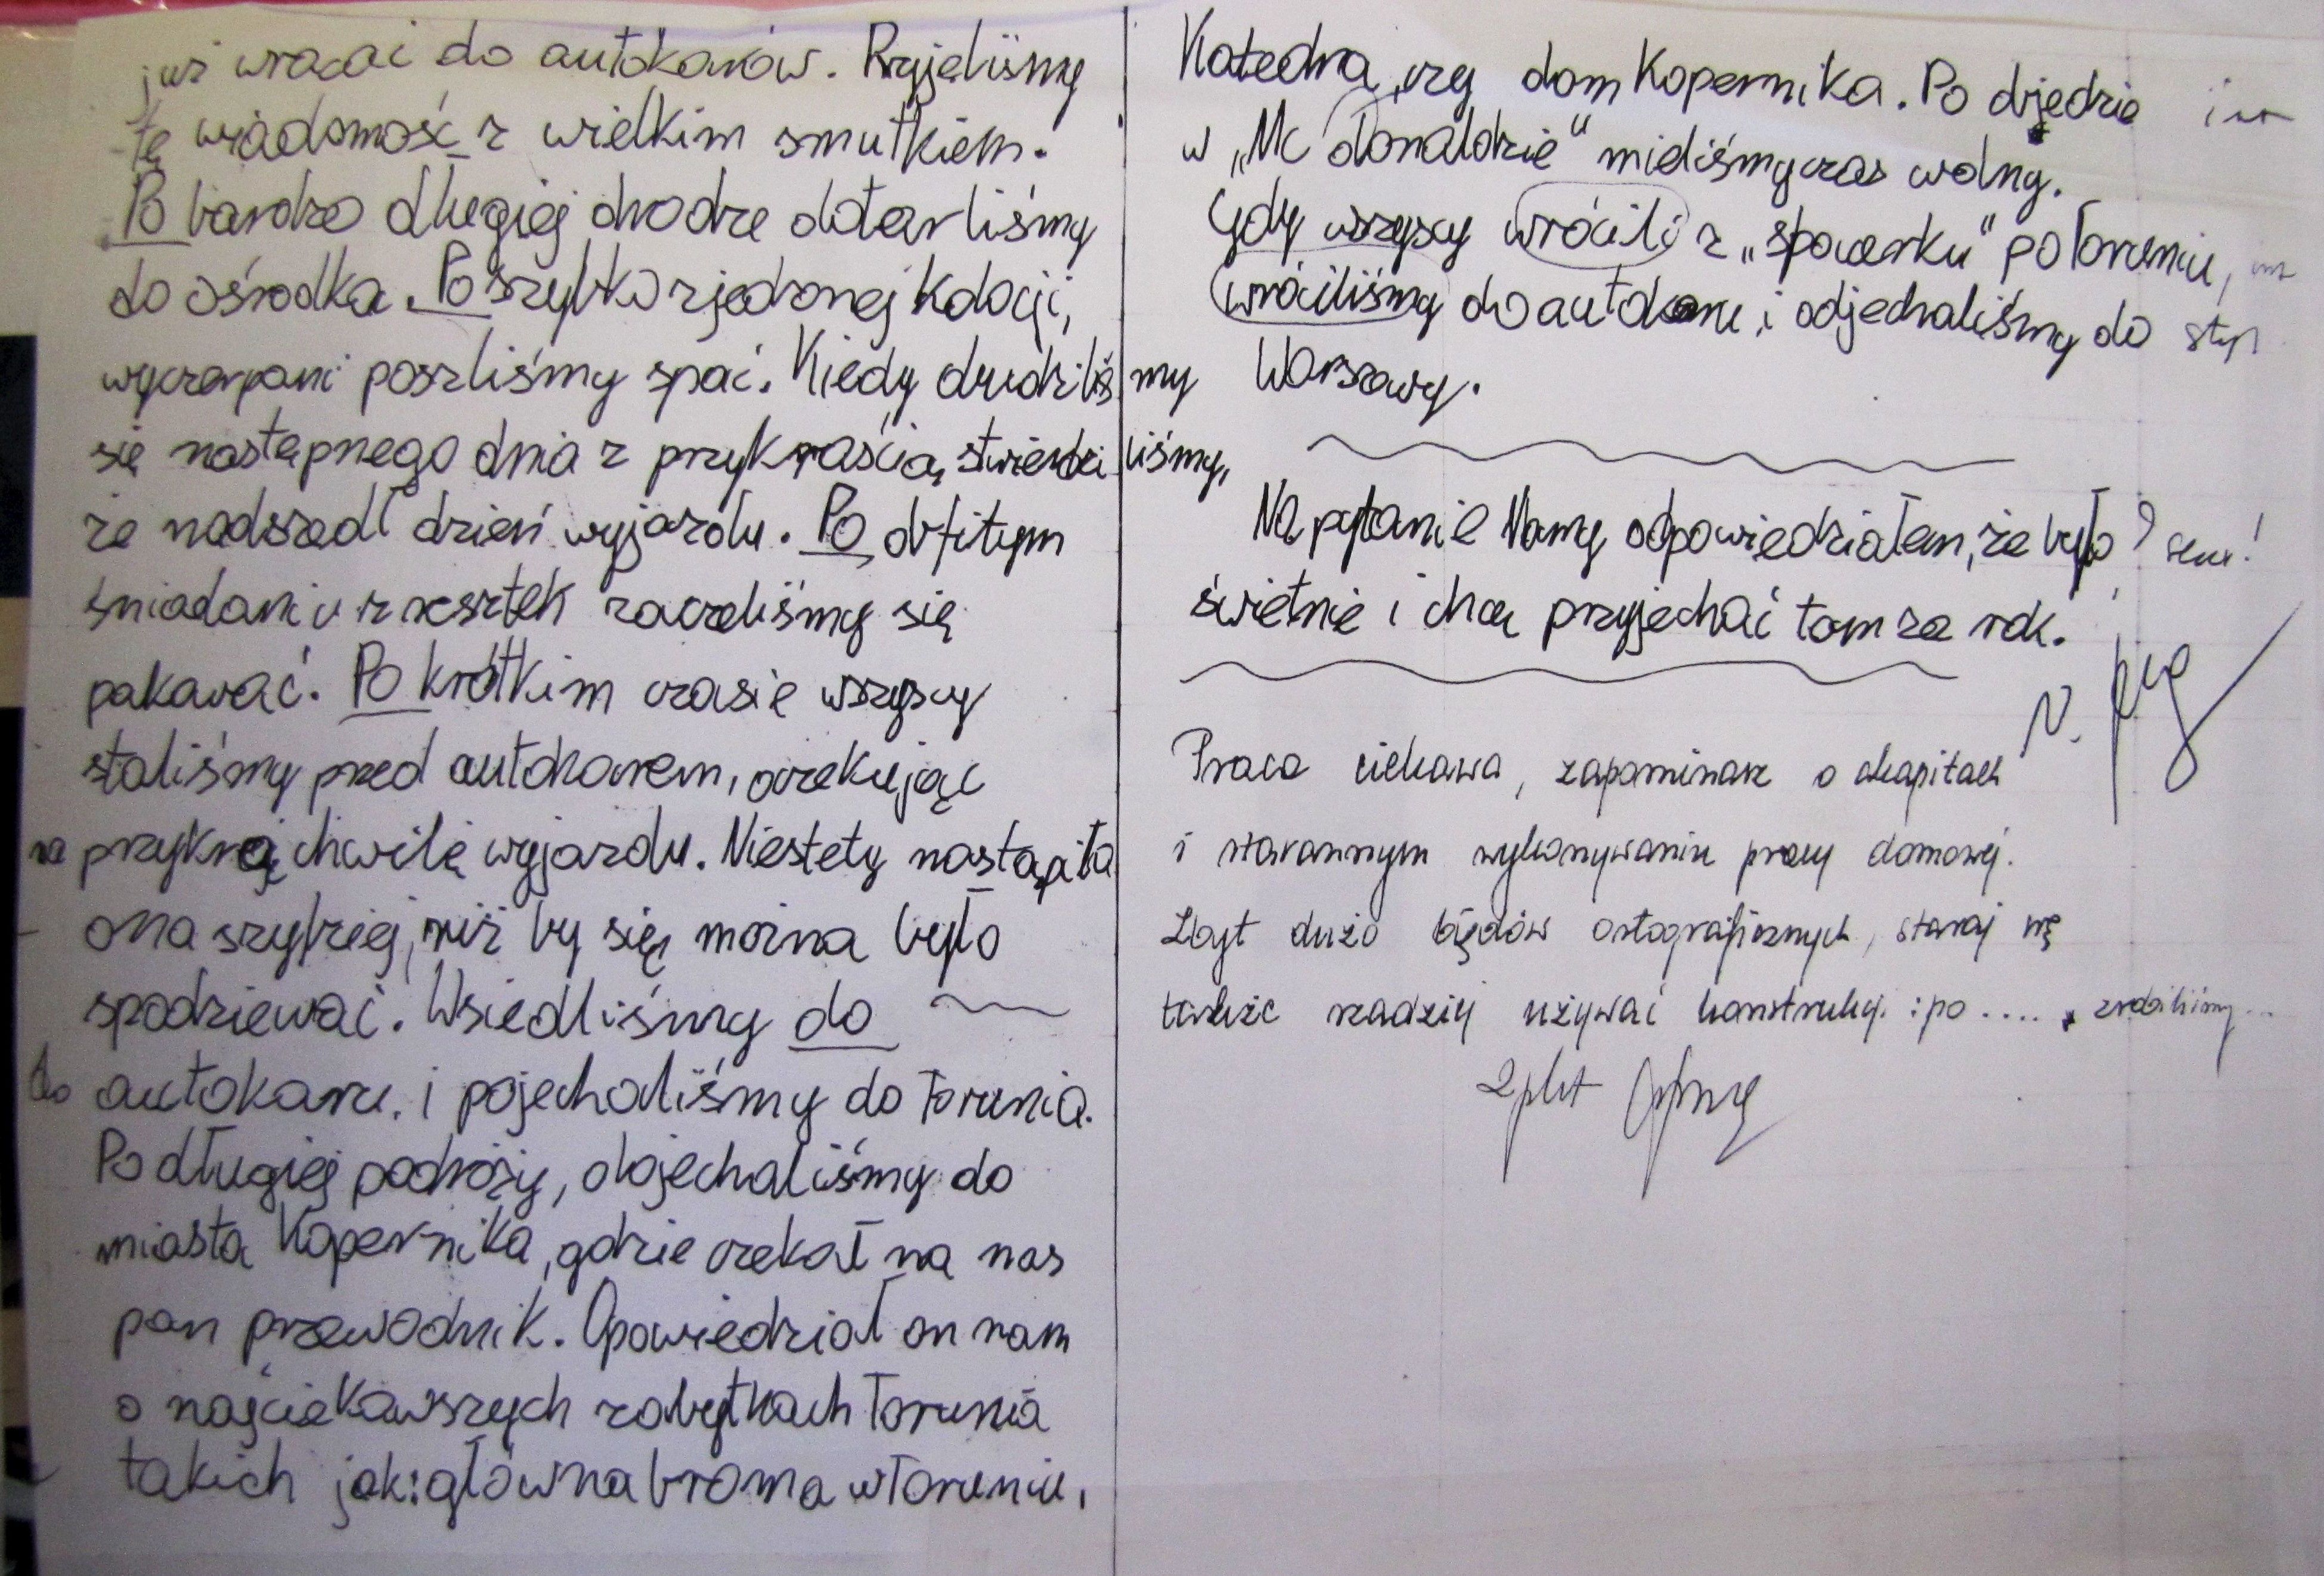 już wracać do autokarów. Przyjeliśmy
tę wiadomość z wielkim smutkiem.
Po bardzo długiej drodze dotarliśmy
do ośrodka. Po szybko zjedzonej kolacji,
wyczerpani poszliśmy spać. Kiedy obudziliśmy
się następnego dnia z przykrością stwierdziliśmy,
że nadszedł dzień wyjazdu. Po obfitym
śniadaniu z resztek zaczeliśmy się
pakować. Po krótkim czasie wszyscy
staliśmy przed autokarem, oczekując
na przykrą chwilę wyjazdu. Niestety nastąpiła
ona szybciej, niż by się można było
spodziewać. Wsiedliśmy do
do autokaru. i pojechaliśmy do Torunia.
Po długiej podróży, dojechaliśmy do
miasta Kopernika, gdzie czekał na nas
pan przewodnik. Opowiedział on nam
o najciekawszych zabytkach Torunia
takich jak: główna brama w Toruniu,
Katedra, czy dom Kopernika. Po objedzie
w „Mc Donaldzie" mieliśmy czas wolny.
Gdy wszyscy wrócili z „spacerku" po Toruniu,
wróciliśmy do autokaru, i odjechaliśmy do styl
Warszawy.
Na pytanie Mamy odpowiedziałem, że było ?
świetnie i chcę przyjechać tam za rok.
Praca ciekawa, zapominasz o akapitach
i starannym wykonywaniu pracy domowej.
Zbyt dużo błędów ortograficznych, staraj się
także rzadziej używać konstrukcji: po .... , zrobiliśmy...